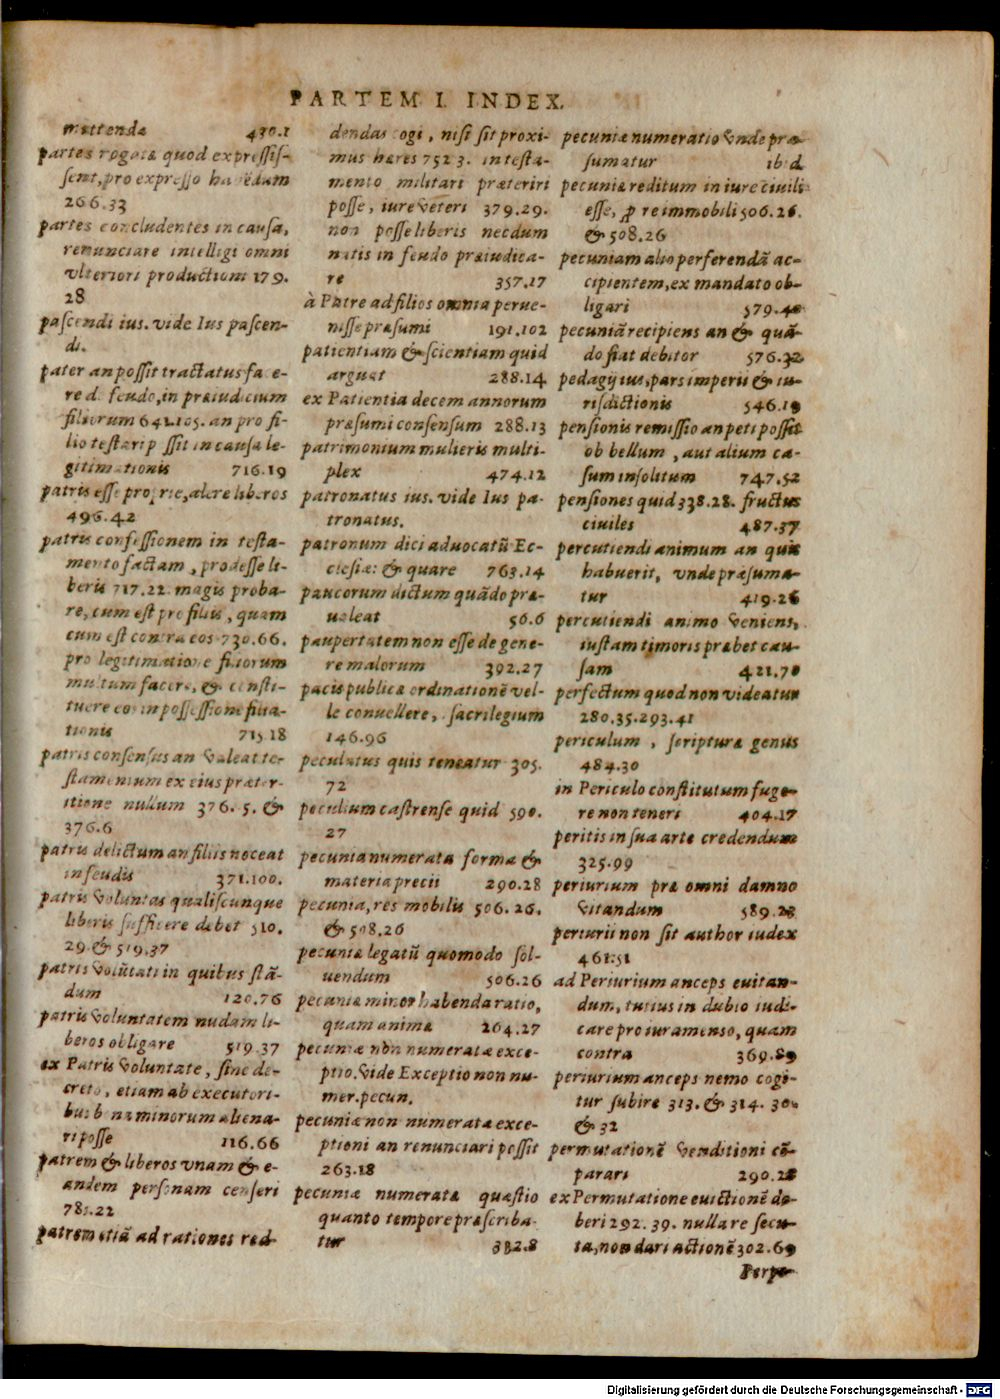 PARTEM I. INDEX.
mittenda 430.1
partes rogata quod expressis-
sent, pro expresso habēdum
266.33
partes concludentes in causa,
renunciare intelligi omni
vlteriori productioni 179.
28
pascendi ius. vide Ius pascen-
di.
pater an possit tractatus face-
re de feudo, in præiudicium
filiorum 641.105. an pro fi-
lio testari possit in causa le-
gitimationis 716.19
patris esse proprie, alere liberos
496.42
patris confessionem in testa-
mento factam, prodesse li-
beris 717.22. magis proba-
re, cum est pro filiis, quam
cum est contra eos 730.66.
pro legitimatione filiorum
multum facere, & consti-
tuere eos in possessione filia-
tionis 715.18
patris consensus an valeat te-
stamentum ex eius præter-
itione nullum 376. 5. &
376.6
patris delictum an filiis noceat
in feudis 371.100.
patris voluntas qualiscunque
liberis sufficere debet 510.
29 & 519.37
patris volūtati in quibus stā-
dum 120.76
patris voluntatem nudam li-
beros obligare 519.37
ex Patris voluntate, sine de-
creto, etiam ab executori-
bus bona minorum aliena-
ri posse 116.66
patrem & liberos vnam & e-
andem personam censeri
781.22
patrem etiā ad rationes red-
dendas cogi, nisi sit proxi-
mus hæres 752 3. in testa-
mento militari præteriri
posse, iure veteri 379.29.
non posse liberis necdum
natis in feudo præiudica-
re 357.17
à Patre ad filios omnia perue-
nisse præsumi 191.102
patientiam & scientiam quid
arguat 288.14
ex Patientia decem annorum
præsumi consensum 288.13
patrimonium mulieris multi-
plex 474.12
patronatus ius. vide Ius pa-
tronatus.
patronum dici aduocatū Ec-
clesiæ: & quare 763.14
paucorum dictum quādo præ-
ualeat 56.6
paupertatem non esse de gene-
re malorum 392.27
pacis publicæ ordinationē vel-
le conuellere, sacrilegium
146.96
peculatus quis teneatur 305.
72
peculium castrense quid 590.
27
pecunia numerata forma &
materia precii 290.28
pecunia, res mobilis 506.26.
& 508.26
pecuniæ legatū quomodo sol-
uendum 506.26
pecuniæ minor habenda ratio,
quam animæ 264.27
pecuniæ non numeratæ exce-
ptio. vide Exceptio non nu-
mer. pecun.
pecuniæ non numeratæ exce-
ptioni an renunciari possit
263.18
pecuniæ numeratæ quæstio
quanto tempore præscriba-
tur 382.8
pecuniæ numeratio vnde præ-
sumatur ibid
pecuniæ reditum in iure ciuili
esse, ꝓ re immobili 506.26.
& 508.26
pecuniam alio perferendā ac-
cipientem, ex mandato ob-
ligari 579.40
pecuniā recipiens an & quā-
do fiat debitor 576.32
pedagij ius, pars imperii & iu-
risdictionis 546.19
pensionis remissio an peti possit
ob bellum, aut alium ca-
sum insolitum 747.52
pensiones quid 338.28. fructus
ciuiles 487.37
percutiendi animum an quis
habuerit, vnde præsuma-
tur 419.26
percutiendi animo veniens,
iustam timoris præbet cau-
sam 421.70
perfectum quod non videatur
280.35.293.41
periculum, scripturæ genus
484.30
in Periculo constitutum fuge-
re non teneri 404.17
peritis in sua arte credendum
325.99
periurium præ omni damno
vitandum 589.28
periurii non sit author iudex
461.51
ad Periurium anceps euitan-
dum, tutius in dubio iudi-
care pro iuramenso, quam
contra 369.89
periurium anceps nemo cogi-
tur subire 313. & 314. 30.
& 32
permutationē venditioni cō-
parari 290.28
ex Permutatione euictionē de-
beri 292. 39. nulla re secu-
ta, non dari actionē 302.69
Perpe-
Digitalisierung gefördert durch die Deutsche Forschungsgemeinschaft - DFG